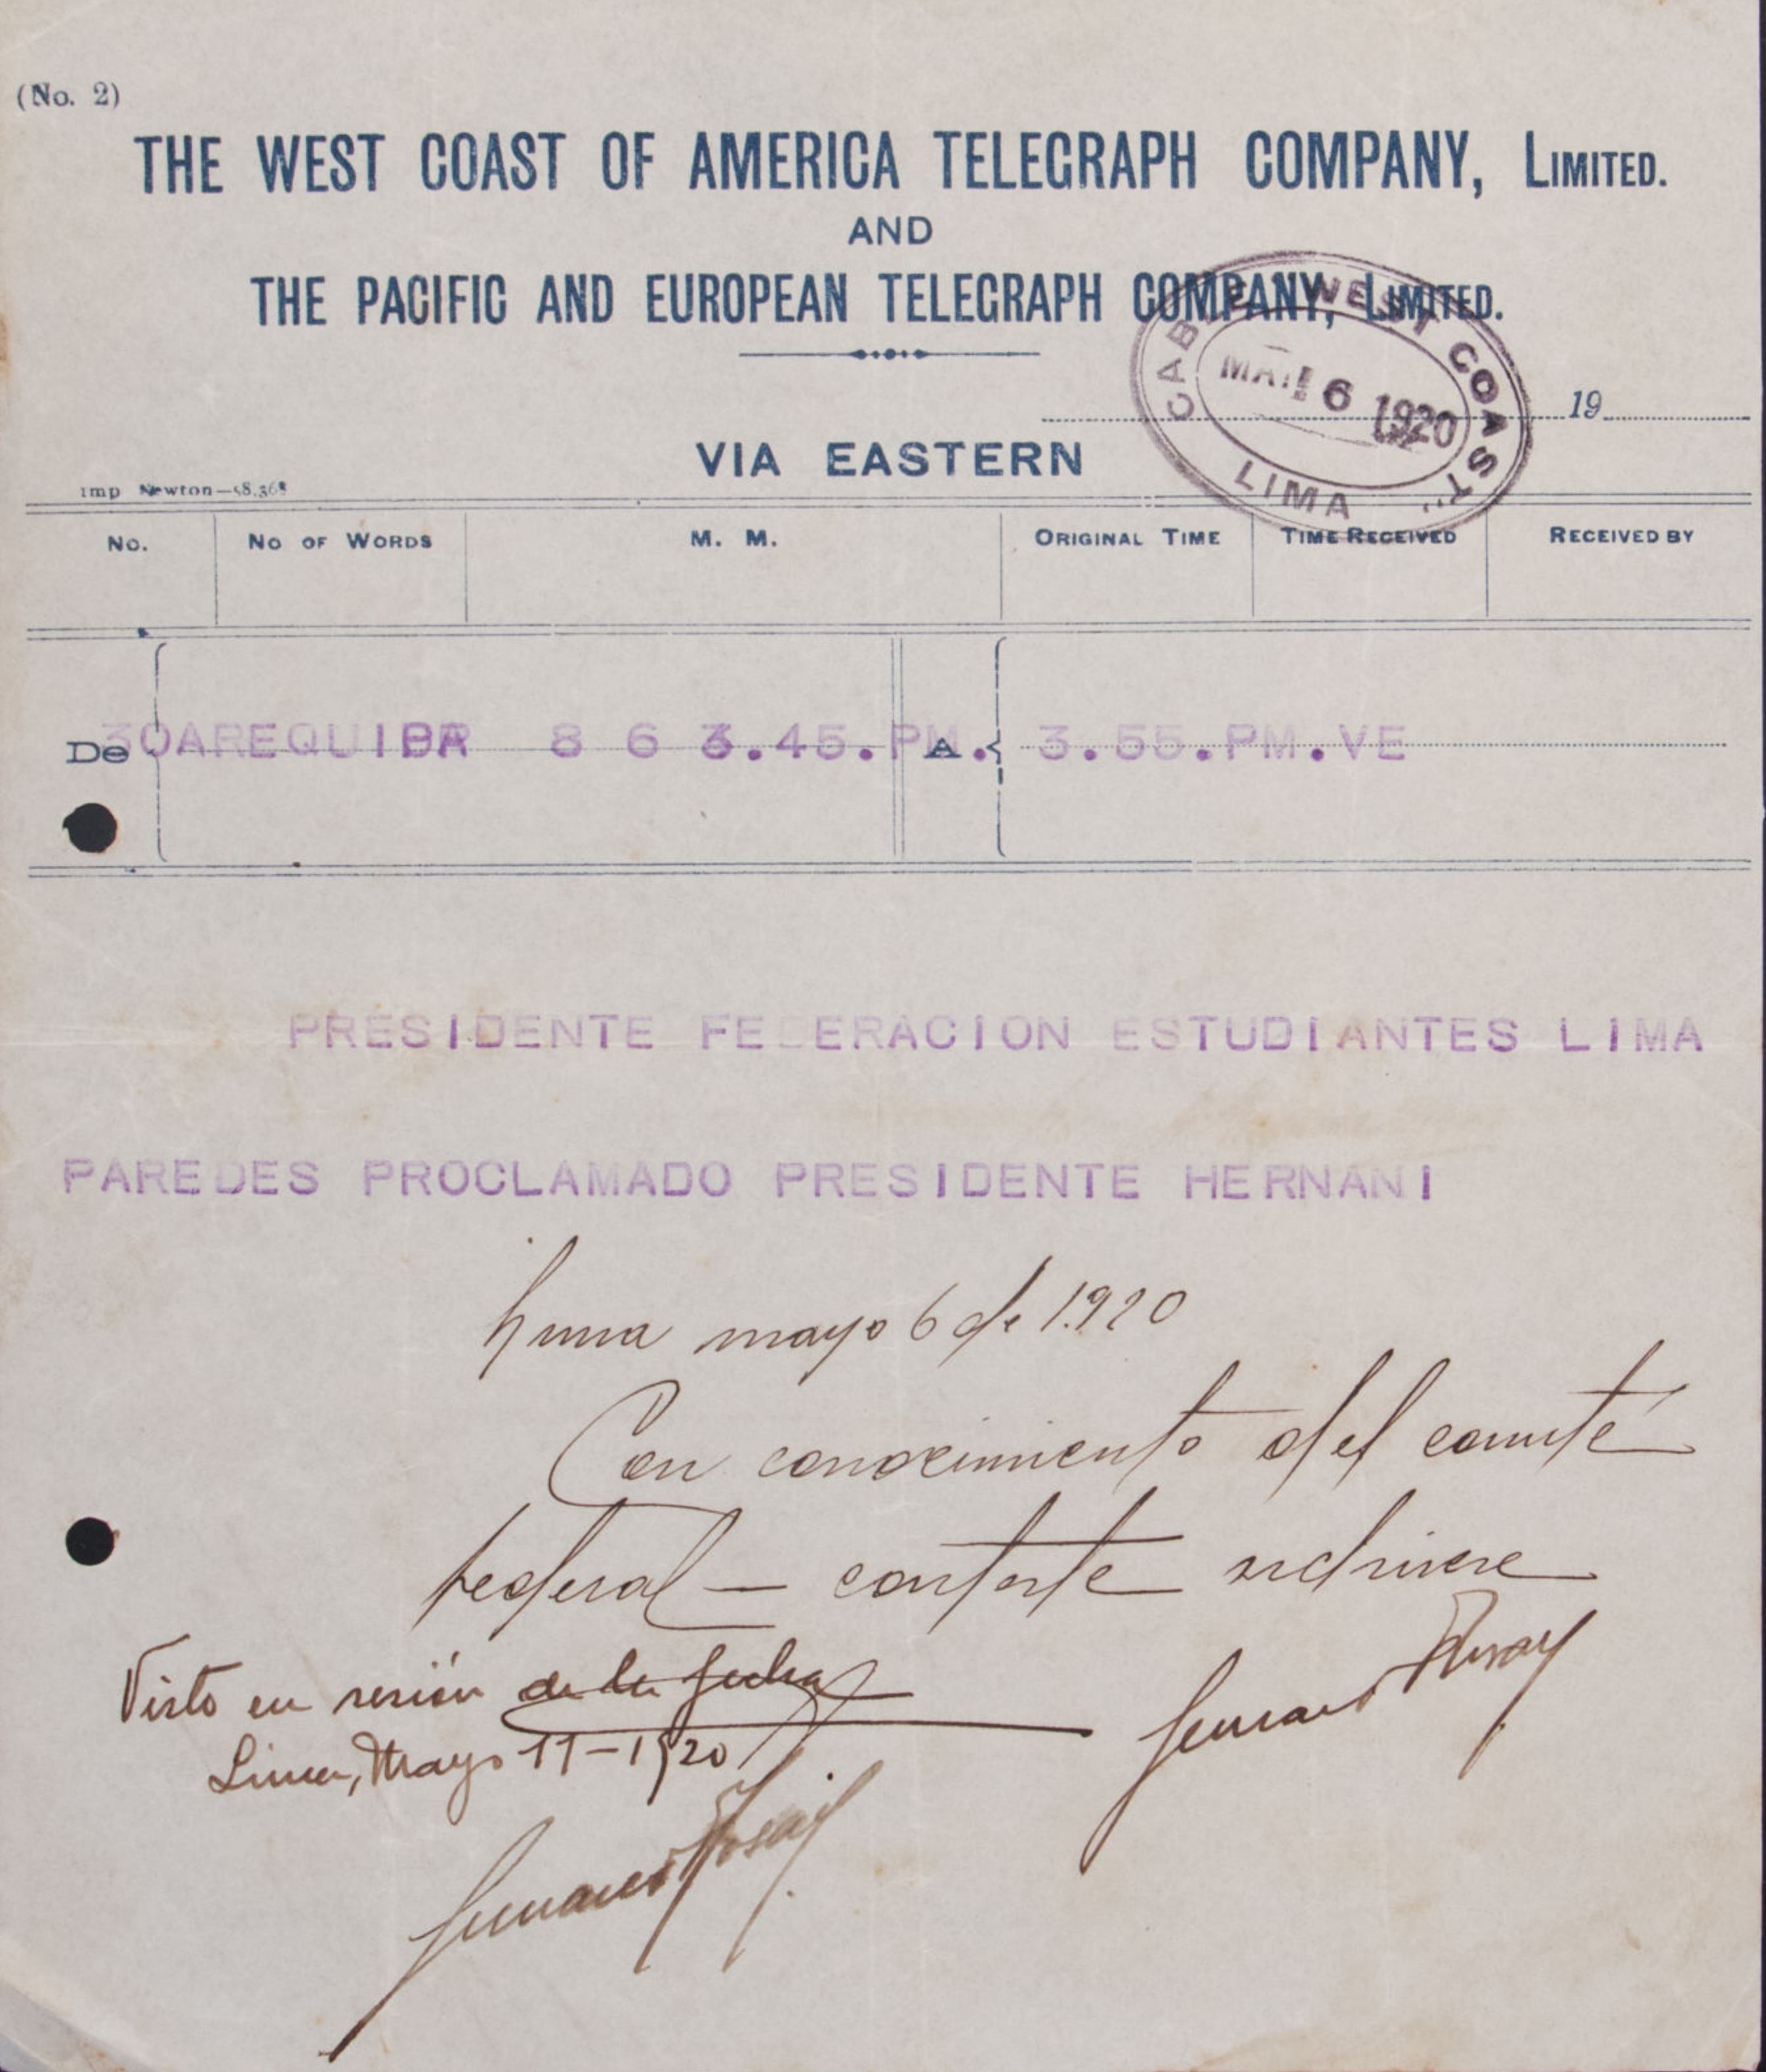 (No. 2)
THE WEST COAST OF AMERICA TELEGRAPH COMPANY, LIMITED.
AND
THE PACIFIC AND EUROPEAN TELEGRAPH COMPANY, LIMITED.
CABLE WEST COAST
6 1920
LIMA
19
VIA EASTERN
Imp Newton—
No. No OF WORDS M. M. ORIGINAL TIME TIME RECEIVED RECEIVED BY
De 30AREQUIPA 8 6 3.45.PM. A 3.55.PM.VE
PRESIDENTE FE ERACION ESTUDIANTES LIMA
PAREDES PROCLAMADO PRESIDENTE HERNANI
Lima mayo 6 de 1.920
Con conocimiento del comité
federal — conteste archivese
Visto en sesión de la fecha
Lima, Mayo 11-1920